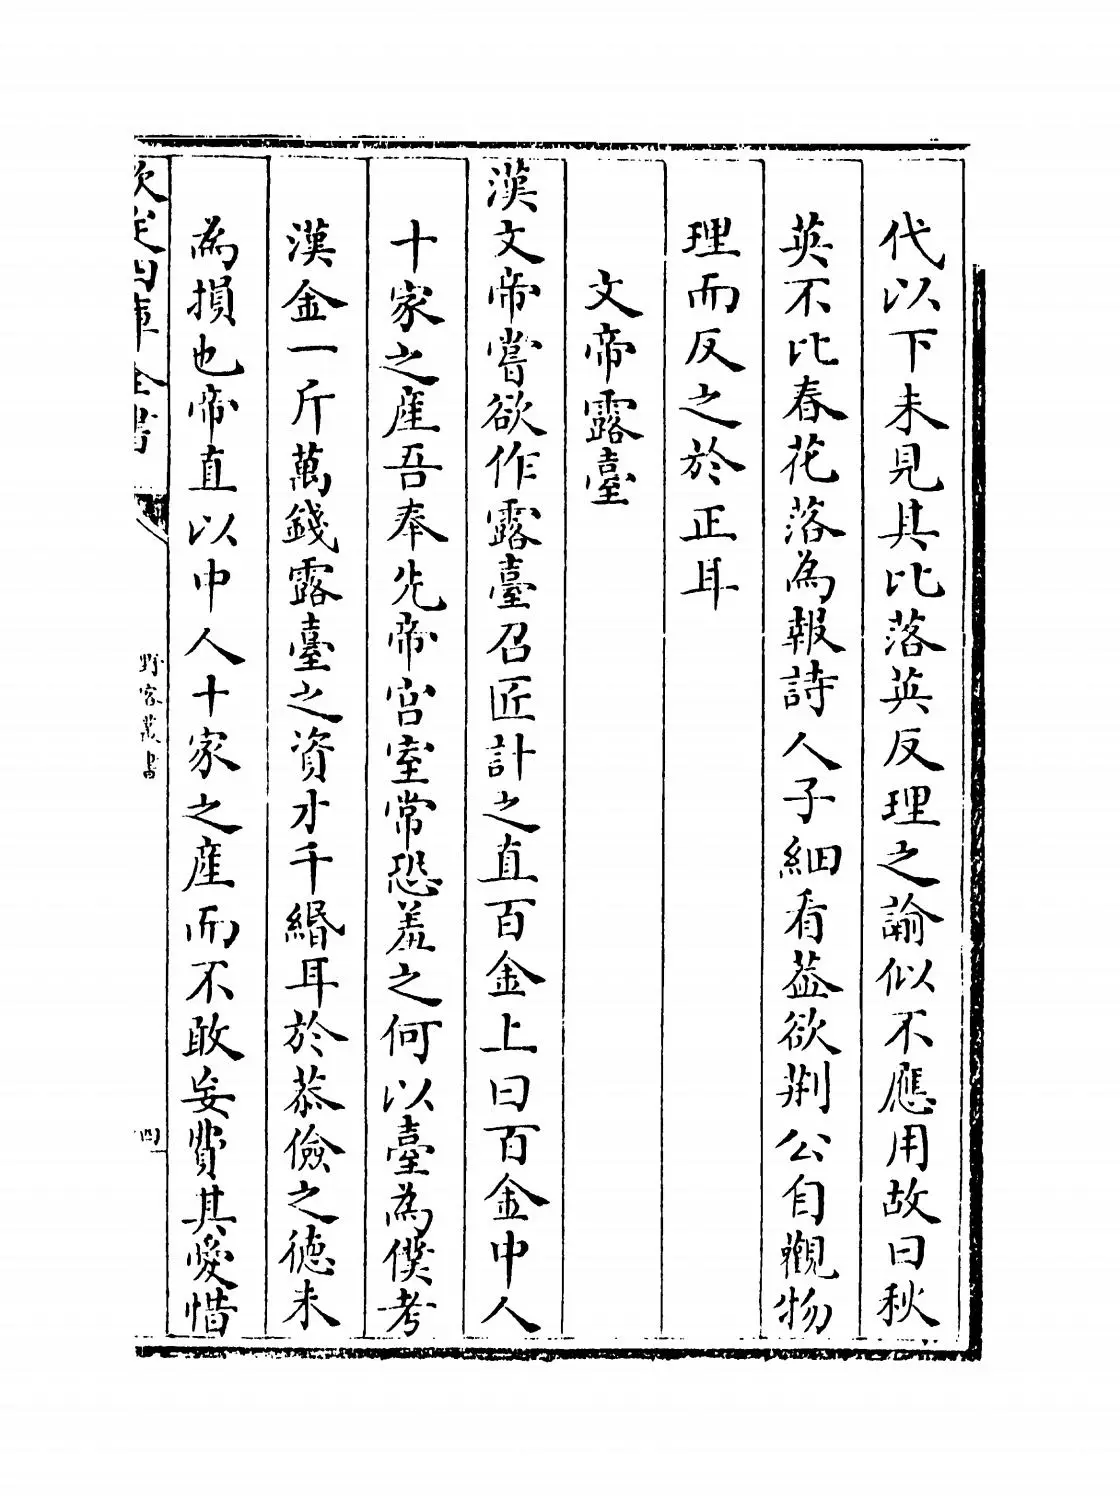 代以下未見其比落英反理之諭似不應用故曰秋
英不比春花落為報詩人子細看葢欲荆公自觀物
理而反之於正耳
文帝露臺
漢文帝嘗欲作露臺召匠計之直百金上曰百金中人
十家之產吾奉先帝宫室常恐羞之何以臺為僕考
漢金一斤萬錢露臺之資才千緡耳於恭儉之德未
為損也帝直以中人十家之產而不敢妄費其愛惜
欽定四庫全書
野客叢書
四